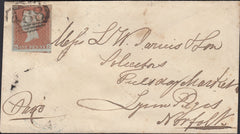 Messrs L W Jarvis & Son
Solicitors
Tuesday Market
Lynn Regis
Norfolk
Page